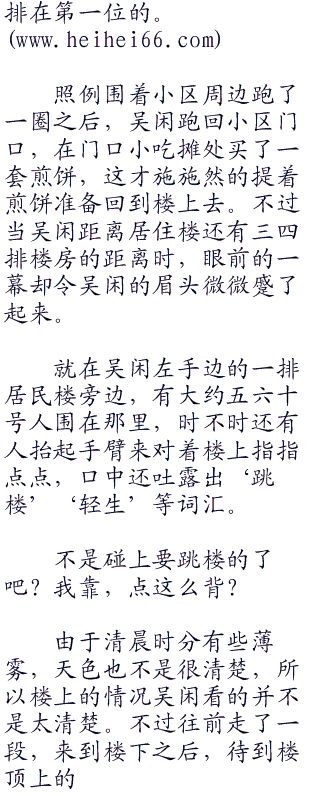 排在第一位的。
(www.heihei66.com)
照例围着小区周边跑了
一圈之后，吴闲跑回小区门
口，在门口小吃摊处买了一
套煎饼，这才施施然的提着
煎饼准备回到楼上去。不过
当吴闲距离居住楼还有三四
排楼房的距离时，眼前的一
幕却令吴闲的眉头微微蹙了
起来。
就在吴闲左手边的一排
居民楼旁边，有大约五六十
号人围在那里，时不时还有
人抬起手臂来对着楼上指指
点点，口中还吐露出‘跳
楼’‘轻生’等词汇。
不是碰上要跳楼的了
吧？我靠，点这么背？
由于清晨时分有些薄
雾，天色也不是很清楚，所
以楼上的情况吴闲看的并不
是太清楚。不过往前走了一
段，来到楼下之后，待到楼
顶上的